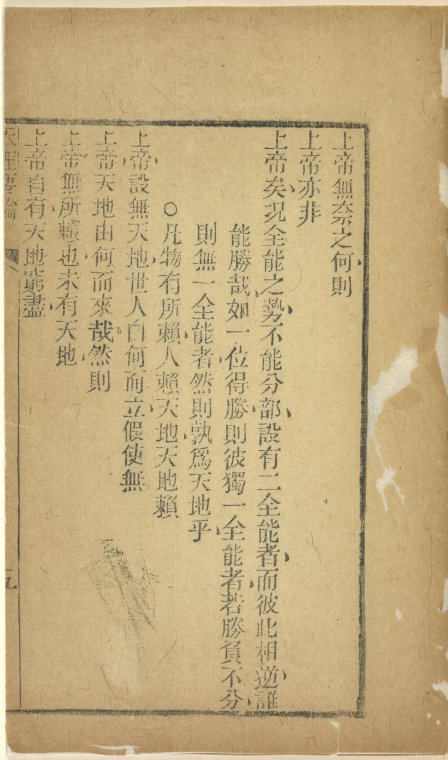 上帝無奈之何則
上帝亦非
上帝矣況全能之勢不能分部設有二全能者而彼此相逆誰
能勝哉如一位得勝則彼獨一全能者若勝負不分
則無一全能者然則孰爲天地乎
○凡物有所賴人賴天地天地賴
上帝設無天地世人自何而立假使無
上帝天地由何而來哉然則
上帝無所賴也未有天地
上帝自有天地窮盡
五